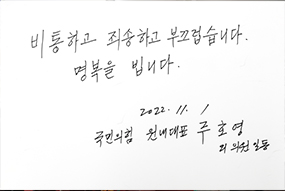 비통하고 죄송하고 부끄럽습니다.
명복을 빕니다.
2022. 11. 1
국민의힘 원내대표 주호영
외 의원 일동